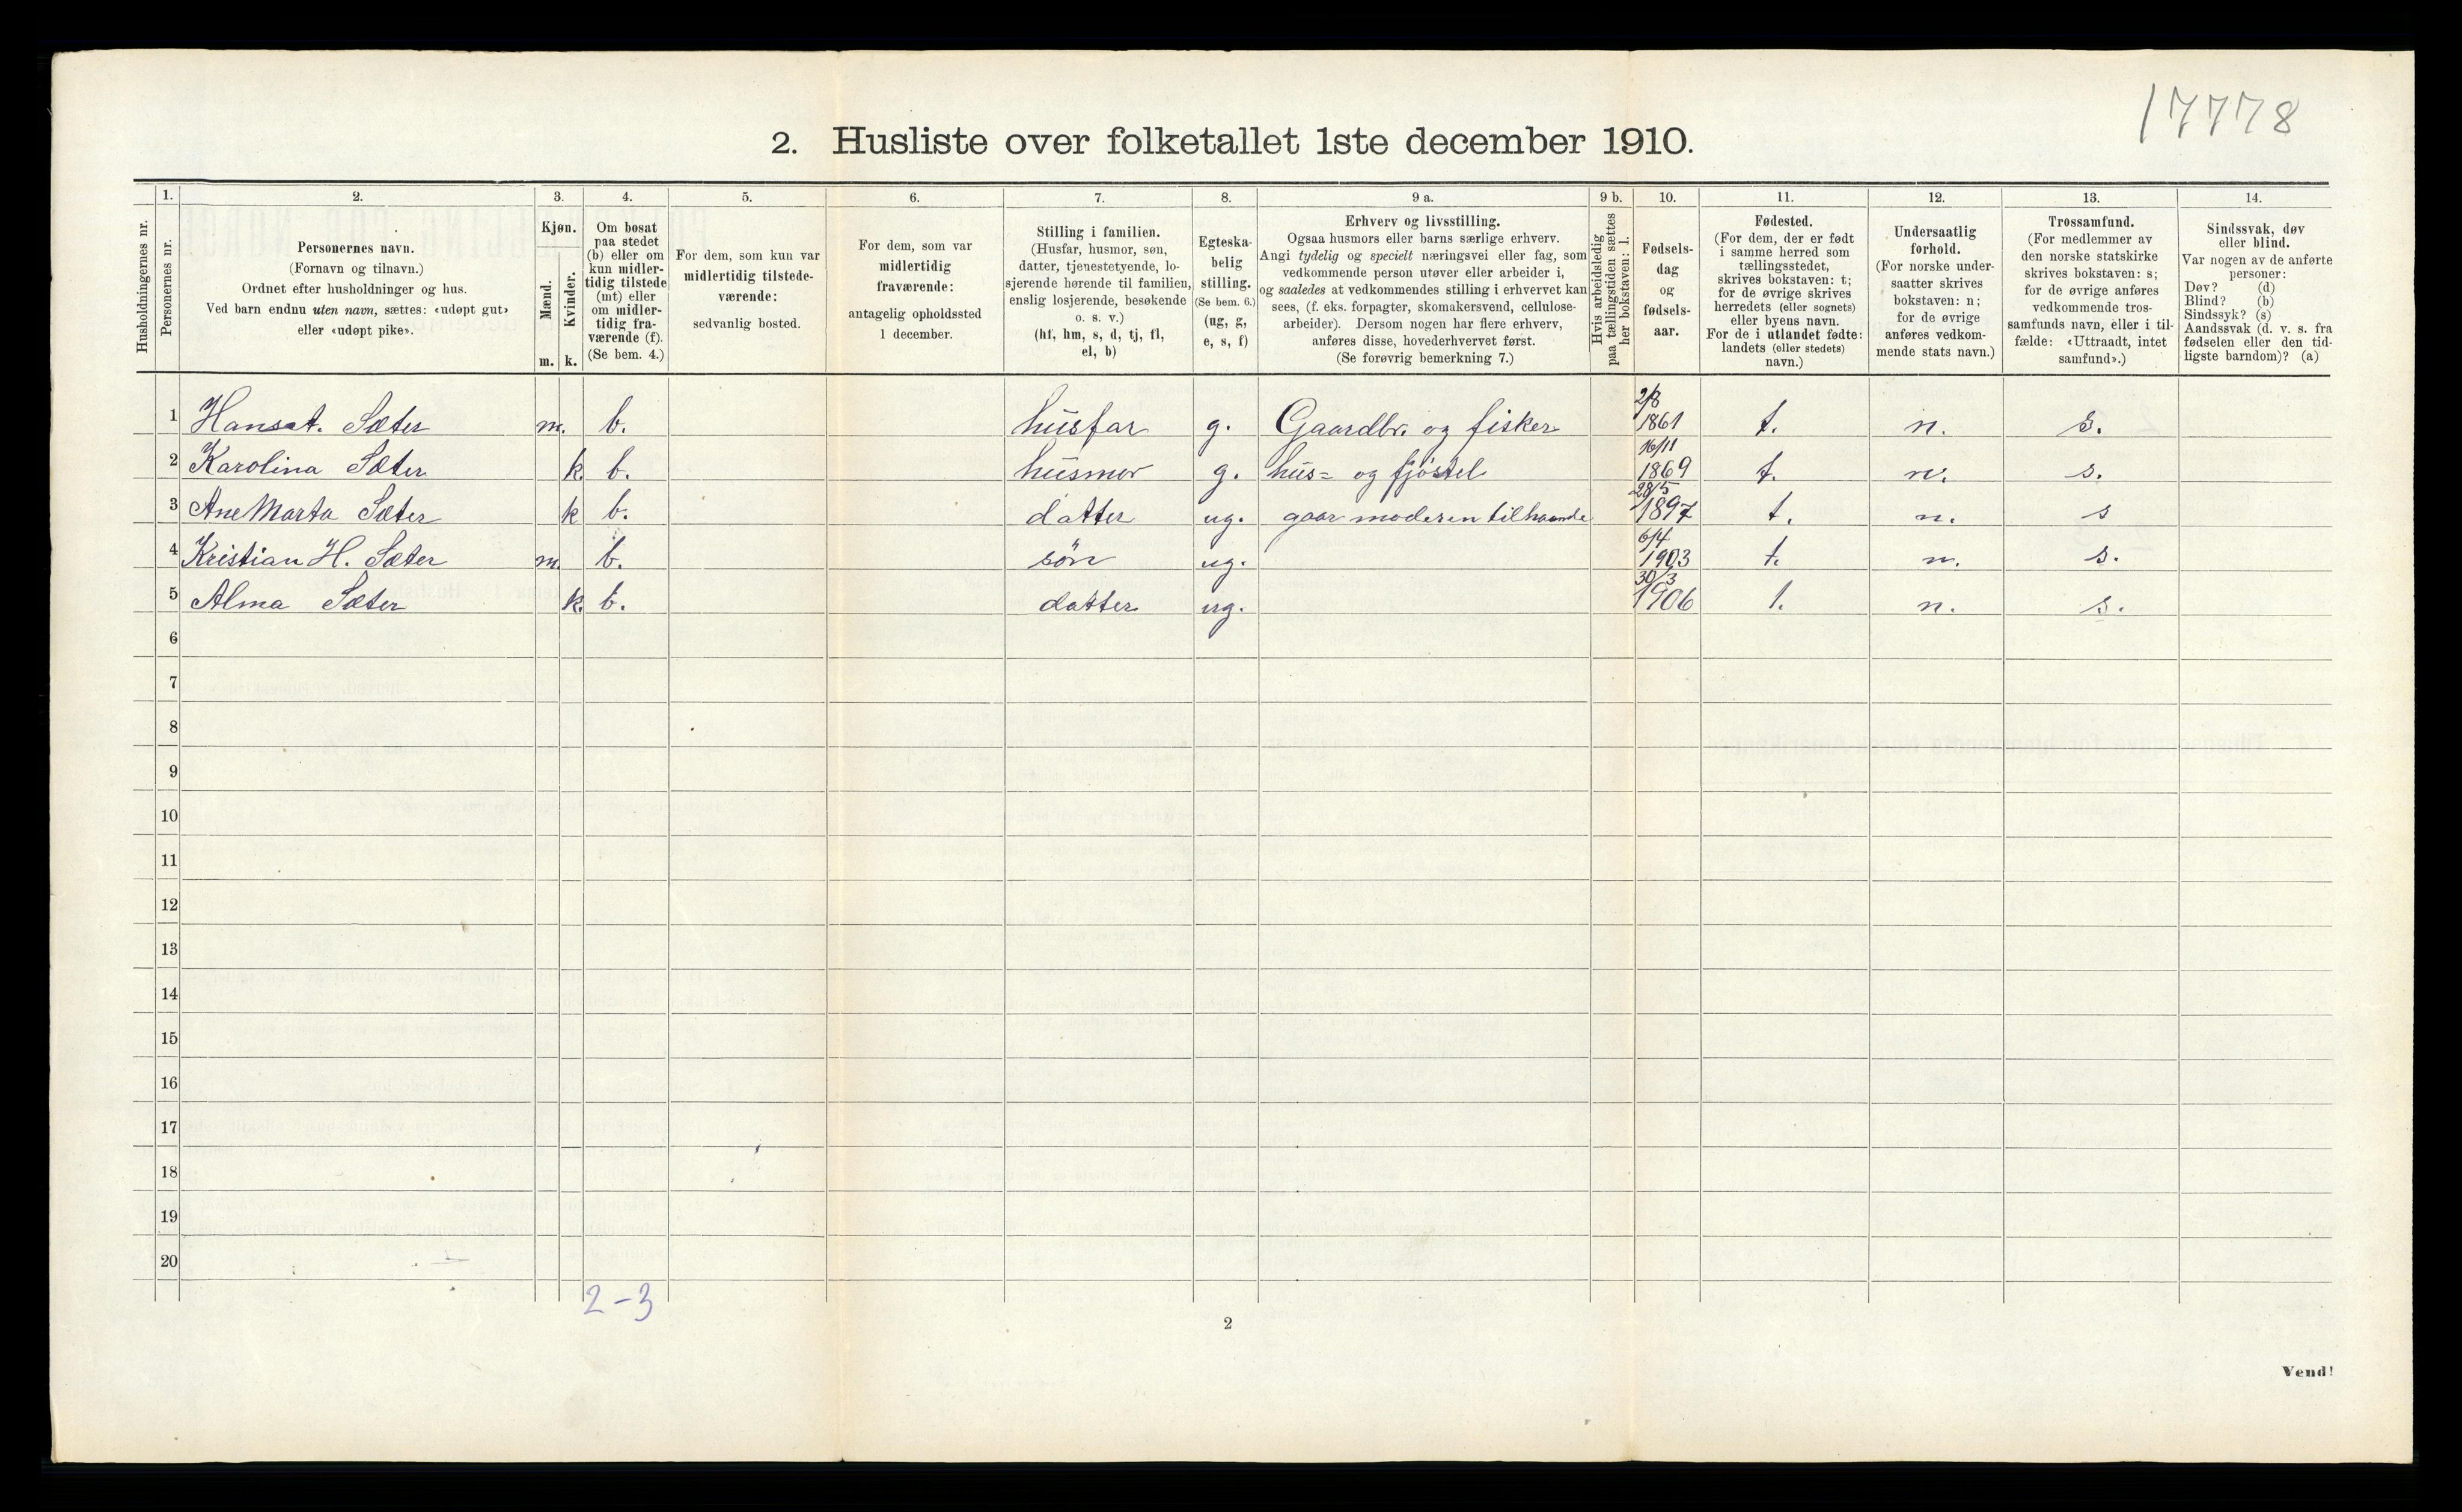 17778
2. Husliste over folketallet 1ste december 1910.
Husholdningernes nr.
1.
Personernes nr.
2.
Personernes navn.
(Fornavn og tilnavn.)
Ordnet efter husholdninger og hus.
Ved barn endnu uten navn, sættes: «udøpt gut»
eller «udøpt pike».
3.
Kjøn.
Mænd.
m.
Kvinder.
k.
4.
Om bosat
paa stedet
(b) eller om
kun midler-
tidig tilstede
(mt) eller
om midler-
tidig fra-
værende (f).
(Se bem. 4.)
5.
For dem, som kun var
midlertidig tilstede-
værende:
sedvanlig bosted.
6.
For dem, som var
midlertidig
fraværende:
antagelig opholdssted
1 december.
7.
Stilling i familien.
(Husfar, husmor, søn,
datter, tjenestetyende, lo-
sjerende hørende til familien,
enslig losjerende, besøkende
o. s. v.)
(hf, hm, s, d, tj, fl,
el, b)
8.
Egteska-
belig
stilling.
(Se bem. 6.)
(ug, g,
e, s, f)
9 a.
Erhverv og livsstilling.
Ogsaa husmors eller barns særlige erhverv.
Angi tydelig og specielt næringsvei eller fag, som
vedkommende person utøver eller arbeider i,
og saaledes at vedkommendes stilling i erhvervet kan
sees, (f. eks. forpagter, skomakersvend, cellulose-
arbeider). Dersom nogen har flere erhverv,
anføres disse, hovederhvervet først.
(Se forøvrig bemerkning 7.)
9 b.
Hvis arbeidsledig
paa tællingstiden sættes
her bokstaven: l.
10.
Fødsels-
dag
og
fødsels-
aar.
11.
Fødested.
(For dem, der er født
i samme herred som
tællingsstedet,
skrives bokstaven: t;
for de øvrige skrives
herredets (eller sognets)
eller byens navn.
For de i utlandet fødte:
landets (eller stedets)
navn.)
12.
Undersaatlig
forhold.
(For norske under-
saatter skrives
bokstaven: n;
for de øvrige
anføres vedkom-
mende stats navn.)
13.
Trossamfund.
(For medlemmer av
den norske statskirke
skrives bokstaven: s;
for de øvrige anføres
vedkommende tros-
samfunds navn, eller i til-
fælde: «Uttraadt, intet
samfund».)
14.
Sindssvak, døv
eller blind.
Var nogen av de anførte
personer:
Døv? (d)
Blind? (b)
Sindssyk? (s)
Aandssvak (d. v. s. fra
fødselen eller den tid-
ligste barndom)? (a)
1 Sæter m. b. husfar g. Gaardbr. og fisker 2/8 1861 t. n. s.
2 Karolina Sæter k. b. husmor g. hus= og fjøstel 16/11 1869 t. n. s.
3 Ane Marta Sæter k b. datter ug. gaar moderen tilhaande 28/5 1897 t. n. s
4 Kristian H. Sæter m. b. søn ug. 6/4 1903 t. n. s.
5 Alma Sæter k. b. datter ug. 30/3 1906 t. n. s.
6
7
8
9
10
11
12
13
14
15
16
17
18
19
20
2-3
2
Vend!